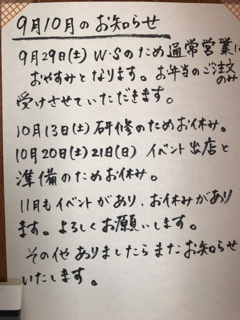 9月10月のお知らせ
9月29日(土) W・Sのため通常営業は
おやすみとなります。お弁当のご注文のみ
受けさせていただきます。
10月13日(土) 研修のためお休み。
10月20日(土)21日(日) イベント出店と
準備のためお休み。
11月もイベントがあり、お休みがあり
ます。よろしくお願いします。
その他ありましたらまたお知らせ
いたします。